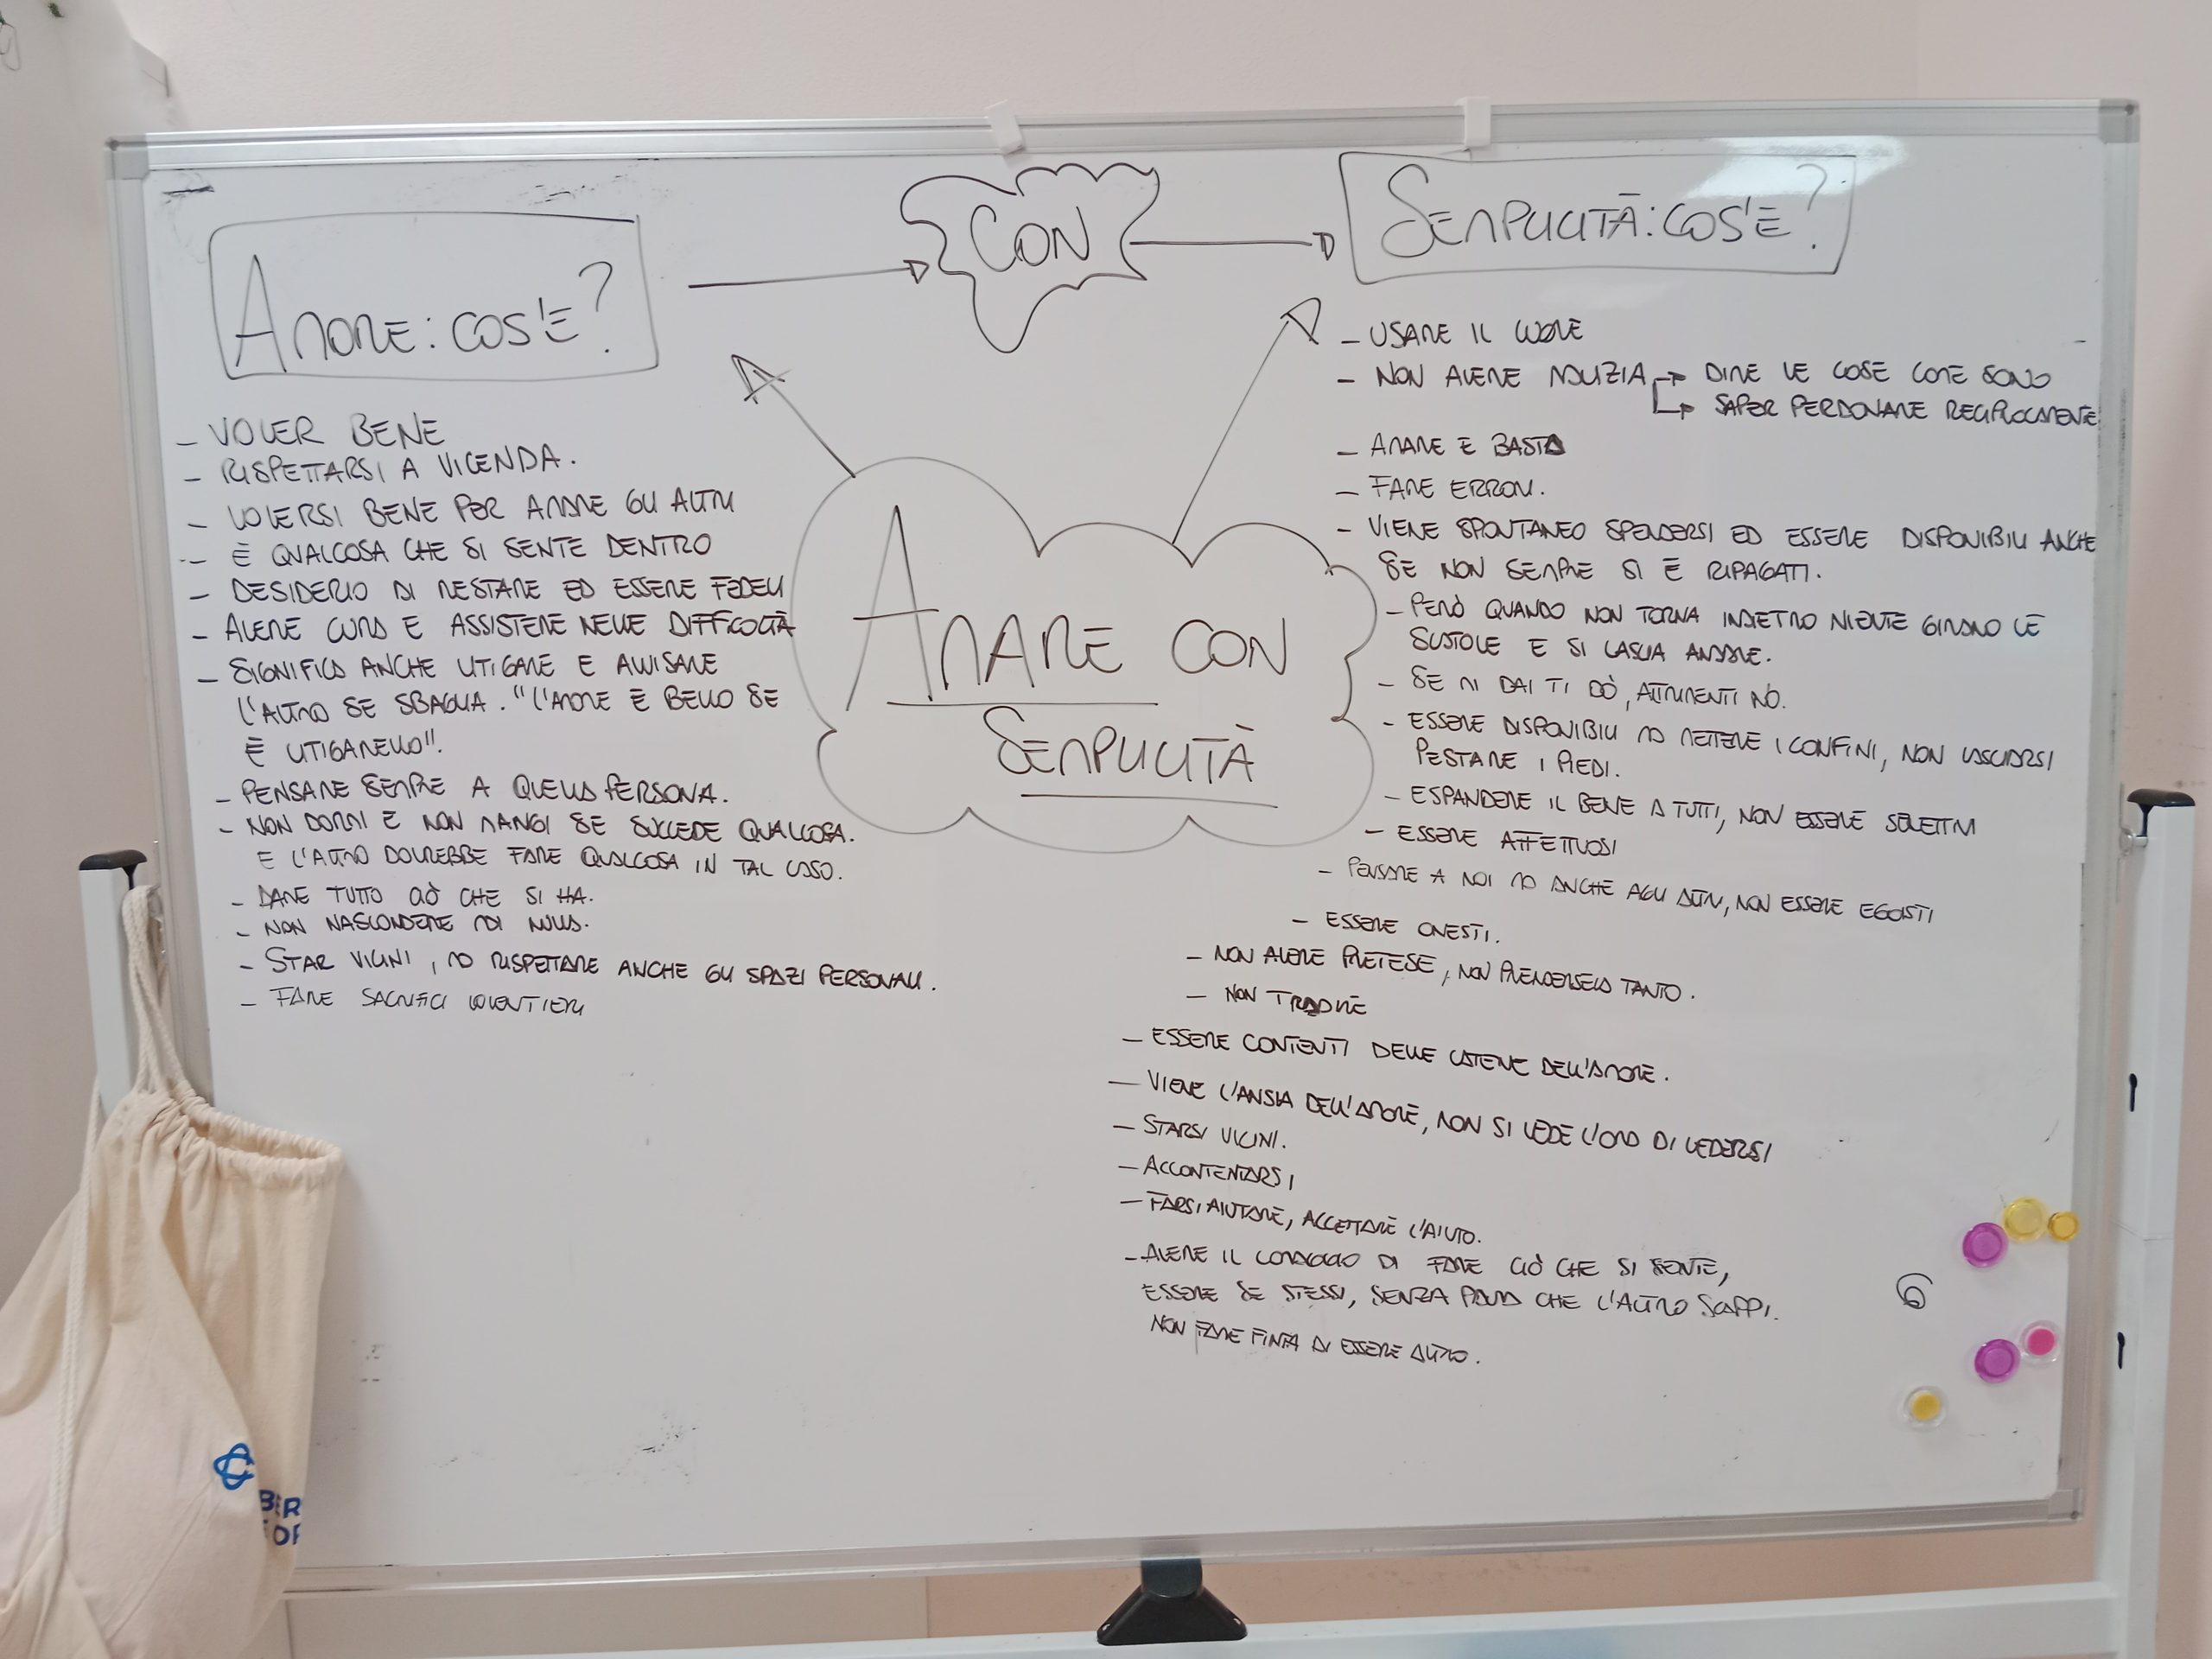 AMORE: COS'È?
CON
SEMPLICITÀ: COS'È?
AMARE CON
SEMPLICITÀ
- VOLER BENE
- RISPETTARSI A VICENDA.
- VOLERSI BENE PER AMARE GLI ALTRI
- È QUALCOSA CHE SI SENTE DENTRO
- DESIDERIO DI RESTARE ED ESSERE FEDELI
- AVERE CURA E ASSISTERE NELLE DIFFICOLTÀ
- SIGNIFICA ANCHE LITIGARE E AVVISARE
L'ALTRO SE SBAGLIA. "L'AMORE È BELLO SE
È LITIGARELLO".
- PENSARE SEMPRE A QUELLA PERSONA.
- NON DORMI E NON MANGI SE SUCCEDE QUALCOSA.
E L'ALTRO DOVREBBE FARE QUALCOSA IN TAL CASO.
- DARE TUTTO CIÒ CHE SI HA.
- NON NASCONDERE MAI NULLA.
- STAR VICINI, MA RISPETTARE ANCHE GLI SPAZI PERSONALI.
- FARE SACRIFICI VOLENTIERI
- USARE IL CUORE
- NON AVERE MALIZIA → DIRE LE COSE COME SONO
→ SAPER PERDONARE RECIPROCAMENTE
- AMARE E BASTA
- FARE ERRORI.
- VIENE SPONTANEO SPENDERSI ED ESSERE DISPONIBILI ANCHE
SE NON SEMPRE SI È RIPAGATI.
- PERÒ QUANDO NON TORNA INDIETRO NIENTE GIRANO LE
SCATOLE E SI LASCIA ANDARE.
- SE MI DAI TI DÒ, ALTRIMENTI NO.
- ESSERE DISPONIBILI MA METTERE I CONFINI, NON LASCIARSI
PESTARE I PIEDI.
- ESPANDERE IL BENE A TUTTI, NON ESSERE SELETTIVI
- ESSERE AFFETTUOSI
- PENSARE A NOI MA ANCHE AGLI ALTRI, NON ESSERE EGOISTI
- ESSERE ONESTI.
- NON AVERE PRETESE, NON PRENDERSELA TANTO.
- NON TRADIRE
- ESSERE CONTENTI DELLE CATENE DELL'AMORE.
- VIENE L'ANSIA DELL'AMORE, NON SI VEDE L'ORA DI VEDERSI
- STARSI VICINI.
- ACCONTENTARSI
- FARSI AIUTARE, ACCETTARE L'AIUTO.
- AVERE IL CORAGGIO DI FARE CIÒ CHE SI SENTE,
ESSERE SE STESSI, SENZA PAURA CHE L'ALTRO SCAPPI.
NON FARE FINTA DI ESSERE ALTRO.